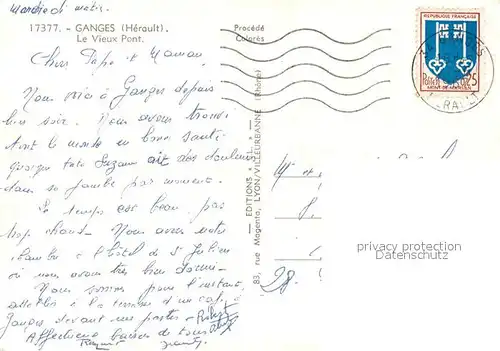 Mardi midi matin
17377. - GANGES (Hérault).
Le Vieux Pont.
Procédé
Colorés
Chers Papa et Maman
Nous voici à Ganges depuis
hier soir. Nous avons trouvé
tout le monde en bonne santé
quoique tante Suzanne ait des douleurs
dans sa jambe par moment.
Le temps est beau pas
trop chaud. Nous avons notre
chambre à l'hôtel de St Julien
où nous avons très bien dormi.
Nous sommes pour l'instant
attablés à la terrasse d'un café
Ganges devant une pastis
Affectueux baisers de tous
— EDITIONS
83, rue Magenta, LYON/VILLEURBANNE (Rhône)
REPUBLIQUE FRANÇAISE
Postes 0,25
MONT-DE-MARSAN
RAULT
M et
98
privacy protection
Datenschutz